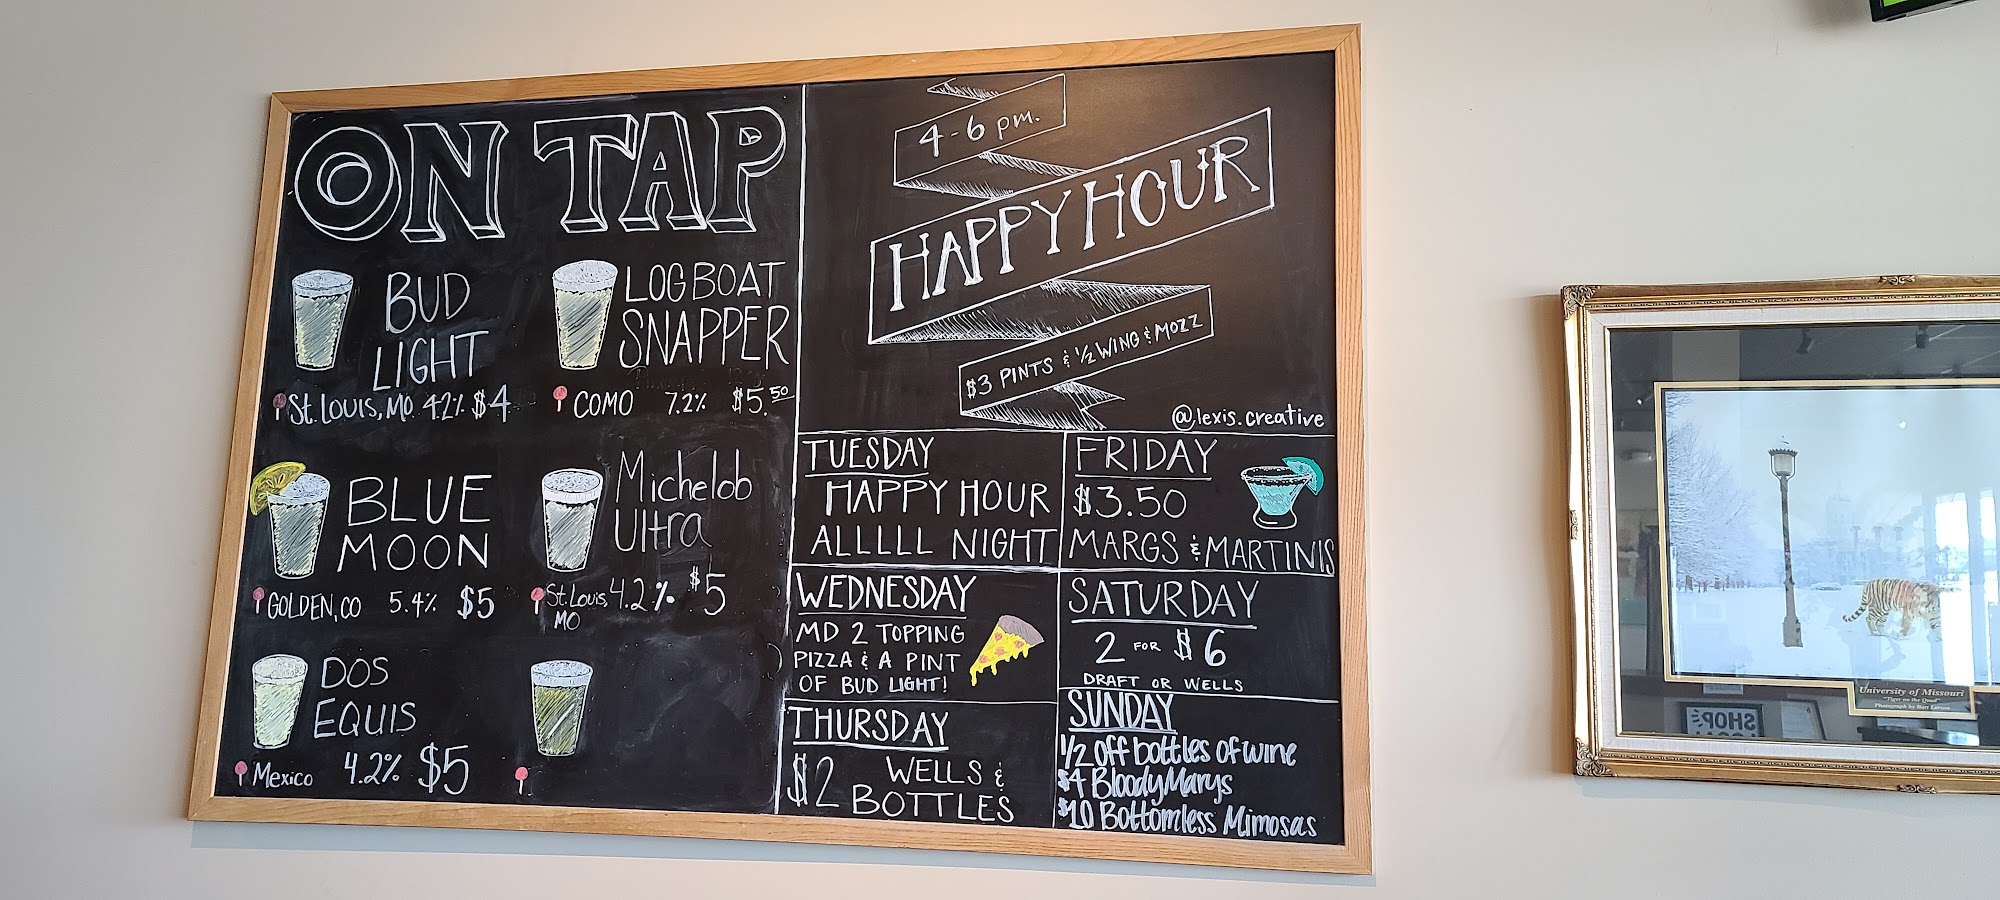 ON TAP
BUD
LIGHT
St. Louis, MO. 4.2% $4
LOGBOAT
SNAPPER
COMO 7.2% $5.50
BLUE
MOON
GOLDEN, CO 5.4% $5
Michelob
Ultra
St. Louis, 4.2% $5
MO
DOS
EQUIS
Mexico 4.2% $5
4-6 pm.
HAPPY HOUR
$3 PINTS & 1/2 WING & MOZZ
@lexis.creative
TUESDAY
HAPPY HOUR
ALLLLL NIGHT
FRIDAY
$3.50
MARGS & MARTINIS
WEDNESDAY
MD 2 TOPPING
PIZZA & A PINT
OF BUD LIGHT!
SATURDAY
2 FOR $6
DRAFT OR WELLS
THURSDAY
$2 WELLS &
BOTTLES
SUNDAY
1/2 off bottles of wine
$4 Bloody Marys
$10 Bottomless Mimosas
University of Missouri
"Tiger on the Quad"
SHOP